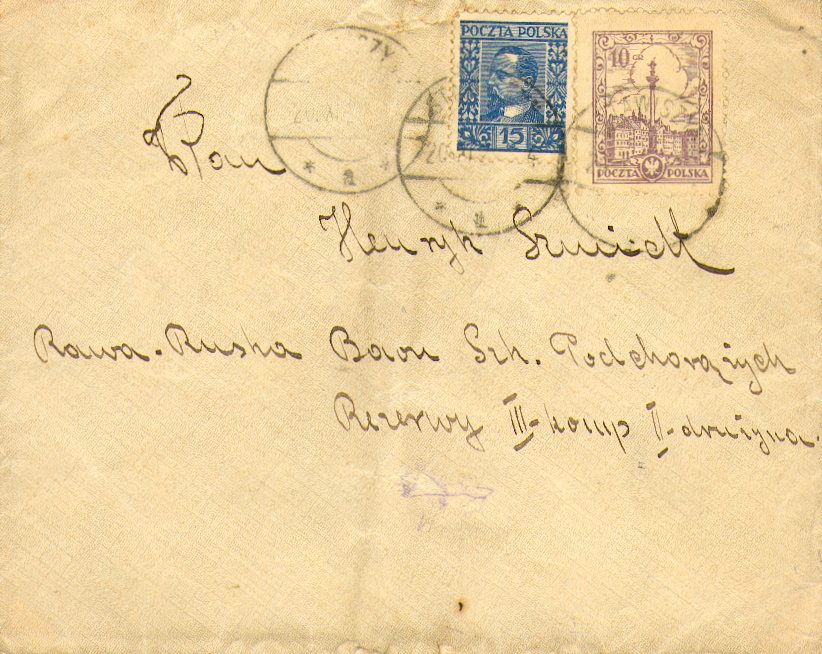 POCZTA POLSKA
15
10
POCZTA POLSKA
WPan
Henryk Szmidt
Rawa-Ruska Baon Szk. Podchorążych
Rezerwy III-komp II-drużyna.